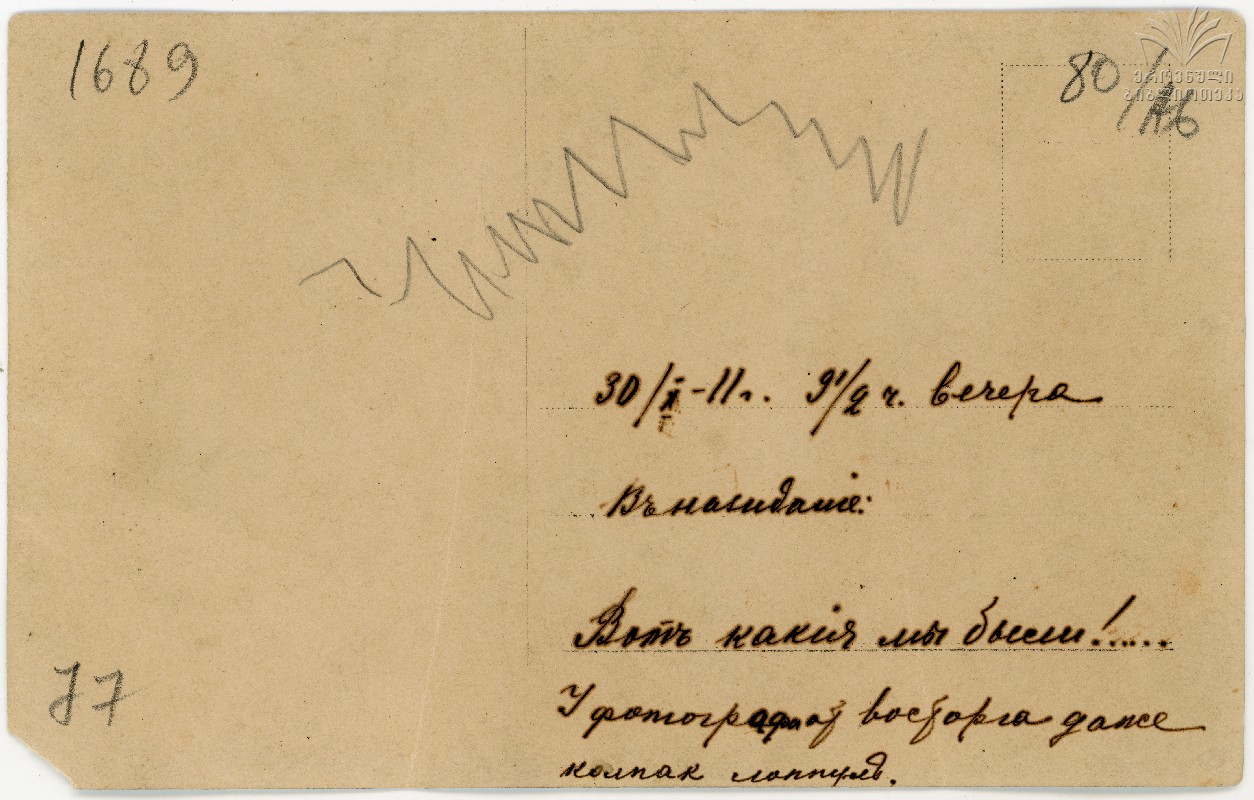 1689
80/
ეროვნული
ბიბლიოთეკა
30/X-11г. 9 1/2 ч. вечера
Въ назидание:
Вотъ какия мы были!.....
У фотографа от восторга даже
колпак лопнулъ.
77